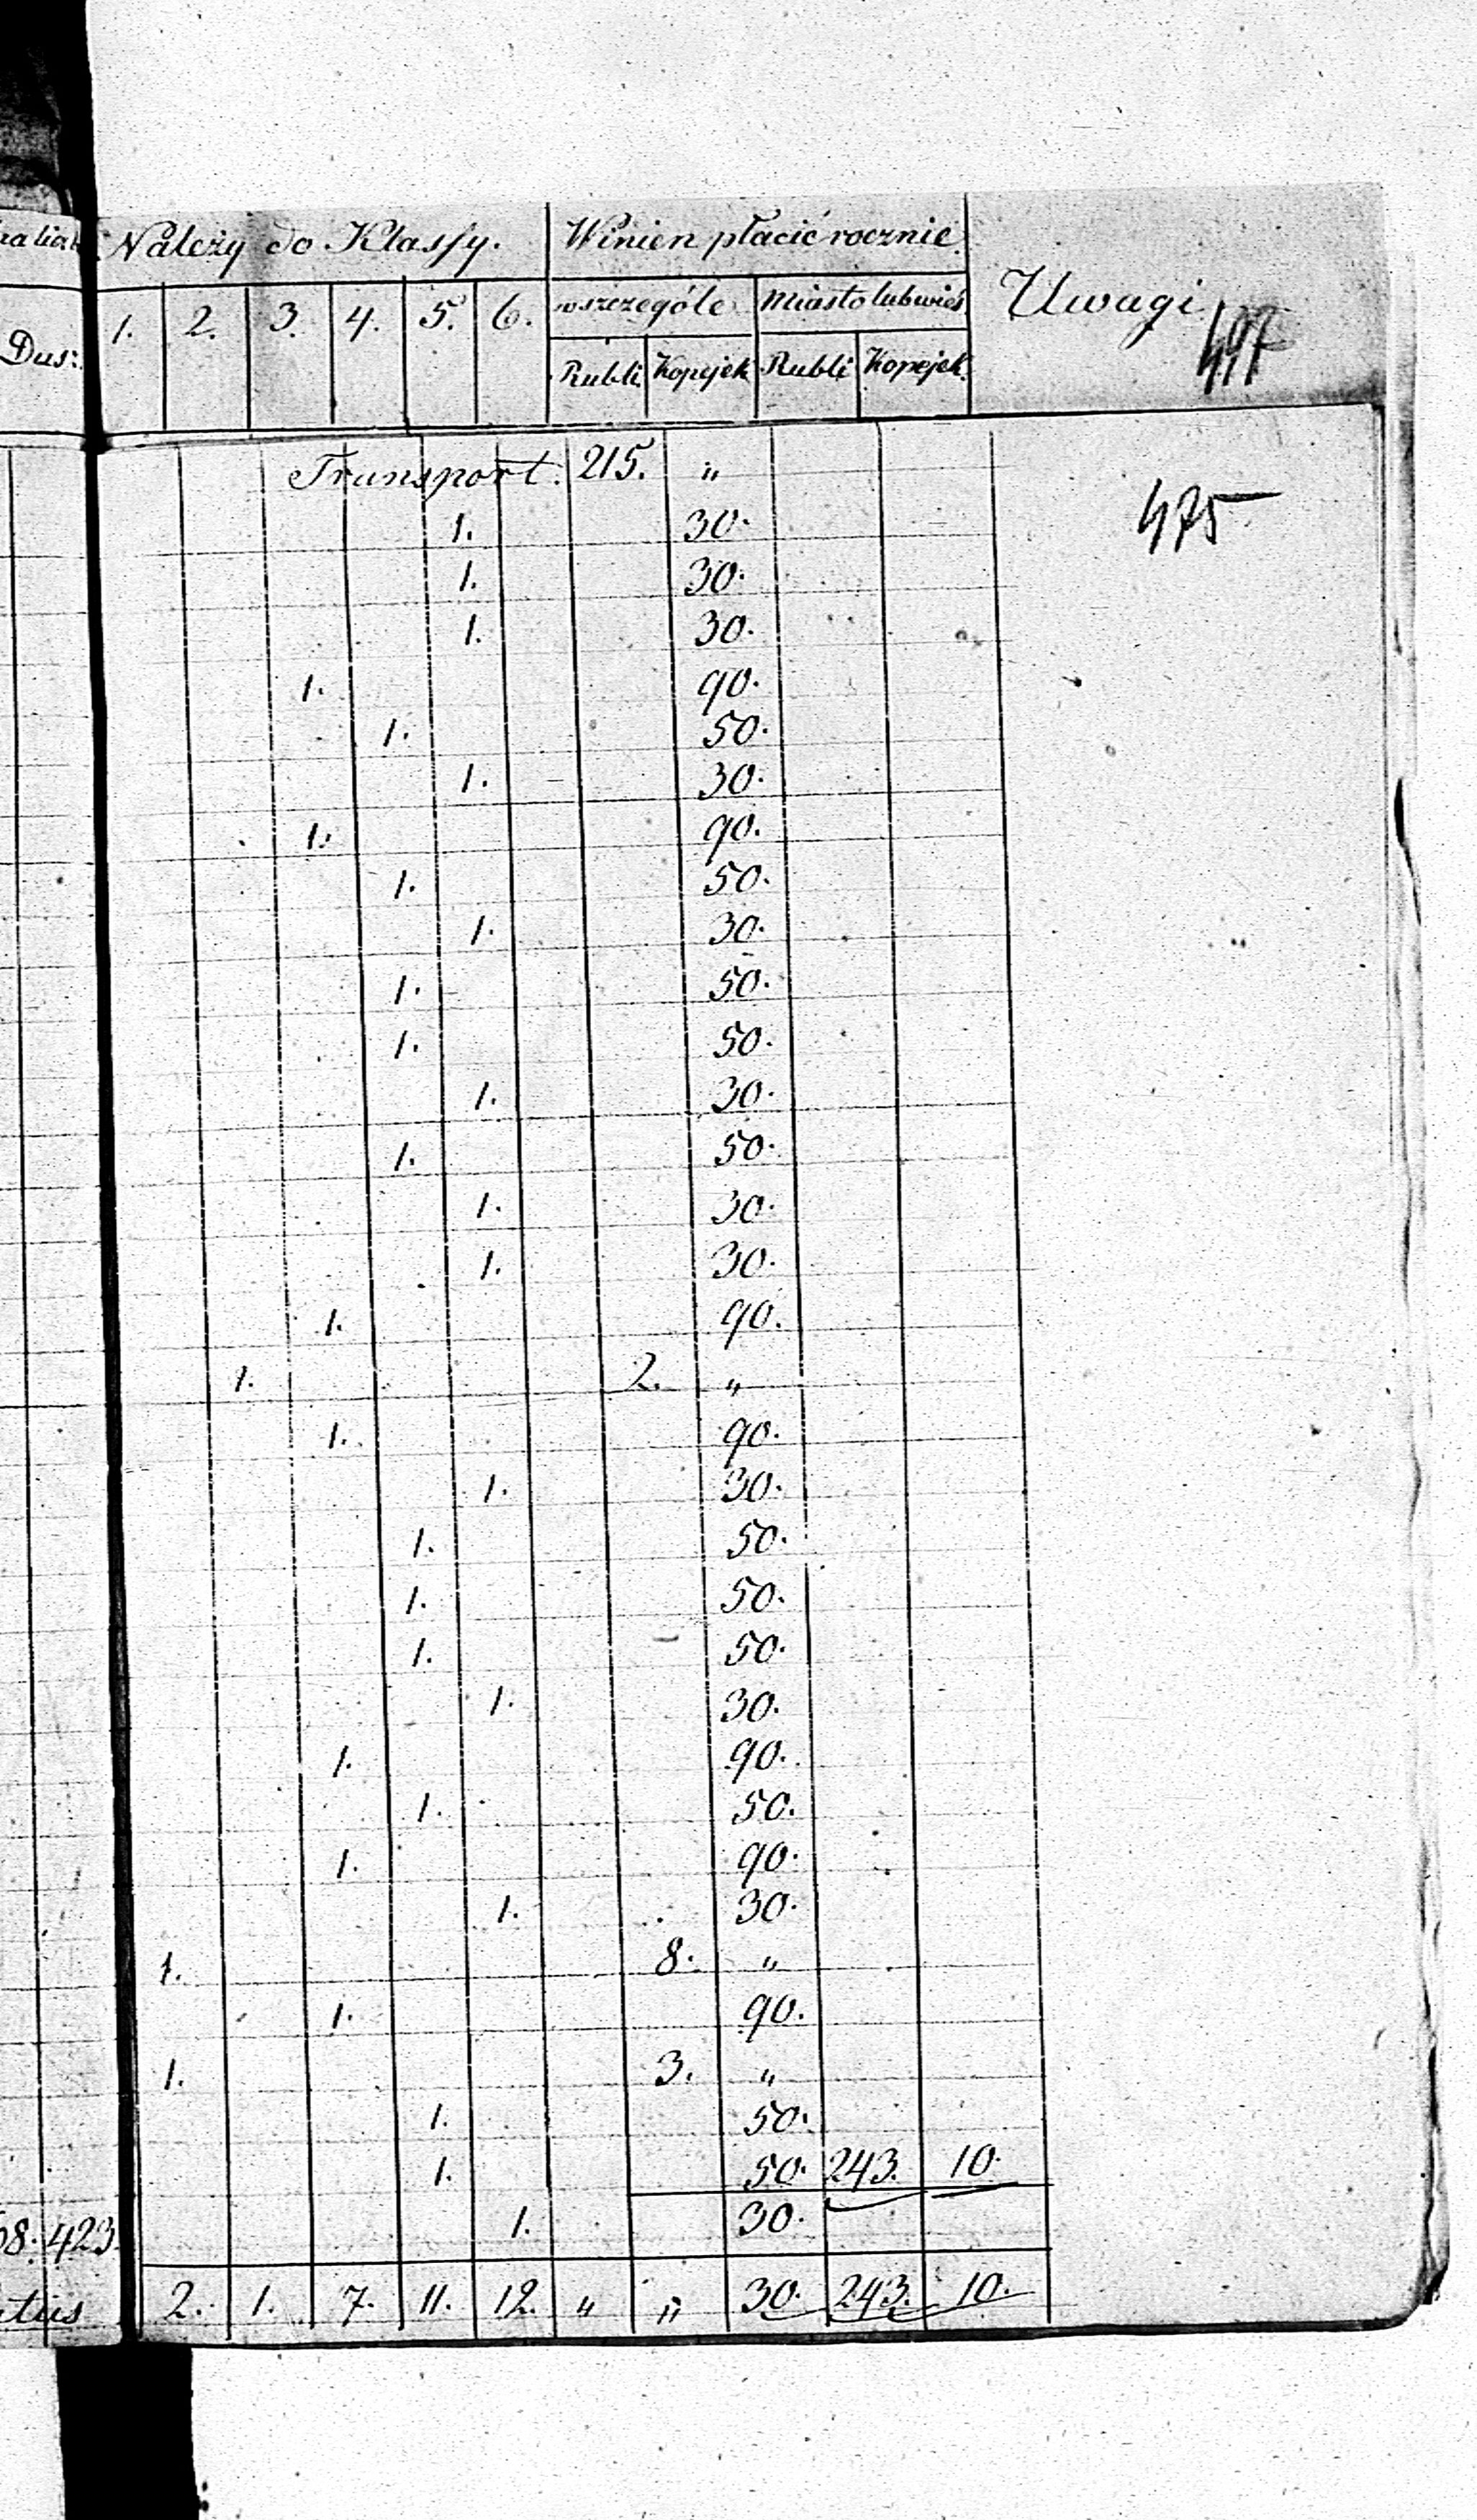 Należy do Klassy. Winien płacić rocznie
Uwagi
wszczególe Miasto lub wieś
1. 2. 3. 4. 5. 6.
Dus:
Rubli Kopijek Rubli Kopejek
Transport. 215. „
475
1. 30.
1. 30.
1. 30.
1. 90.
1. 50.
1. 30.
1. 90.
1. 50.
1. 30.
1. 50.
1. 50.
1. 30.
1. 50.
1. 30.
1. 30.
1. 90.
1. 2. „
1. 90.
1. 30.
1. 50.
1. 50.
1. 50.
1. 30.
1. 90.
1. 50.
1. 90.
1. 30.
1. 8. „
1. 90.
1. 3. „
1. 50.
1. 50. 243. 10.
8. 423. 1. 30.
2. 1. 7. 11. 12. „ „ 30. 243. 10.